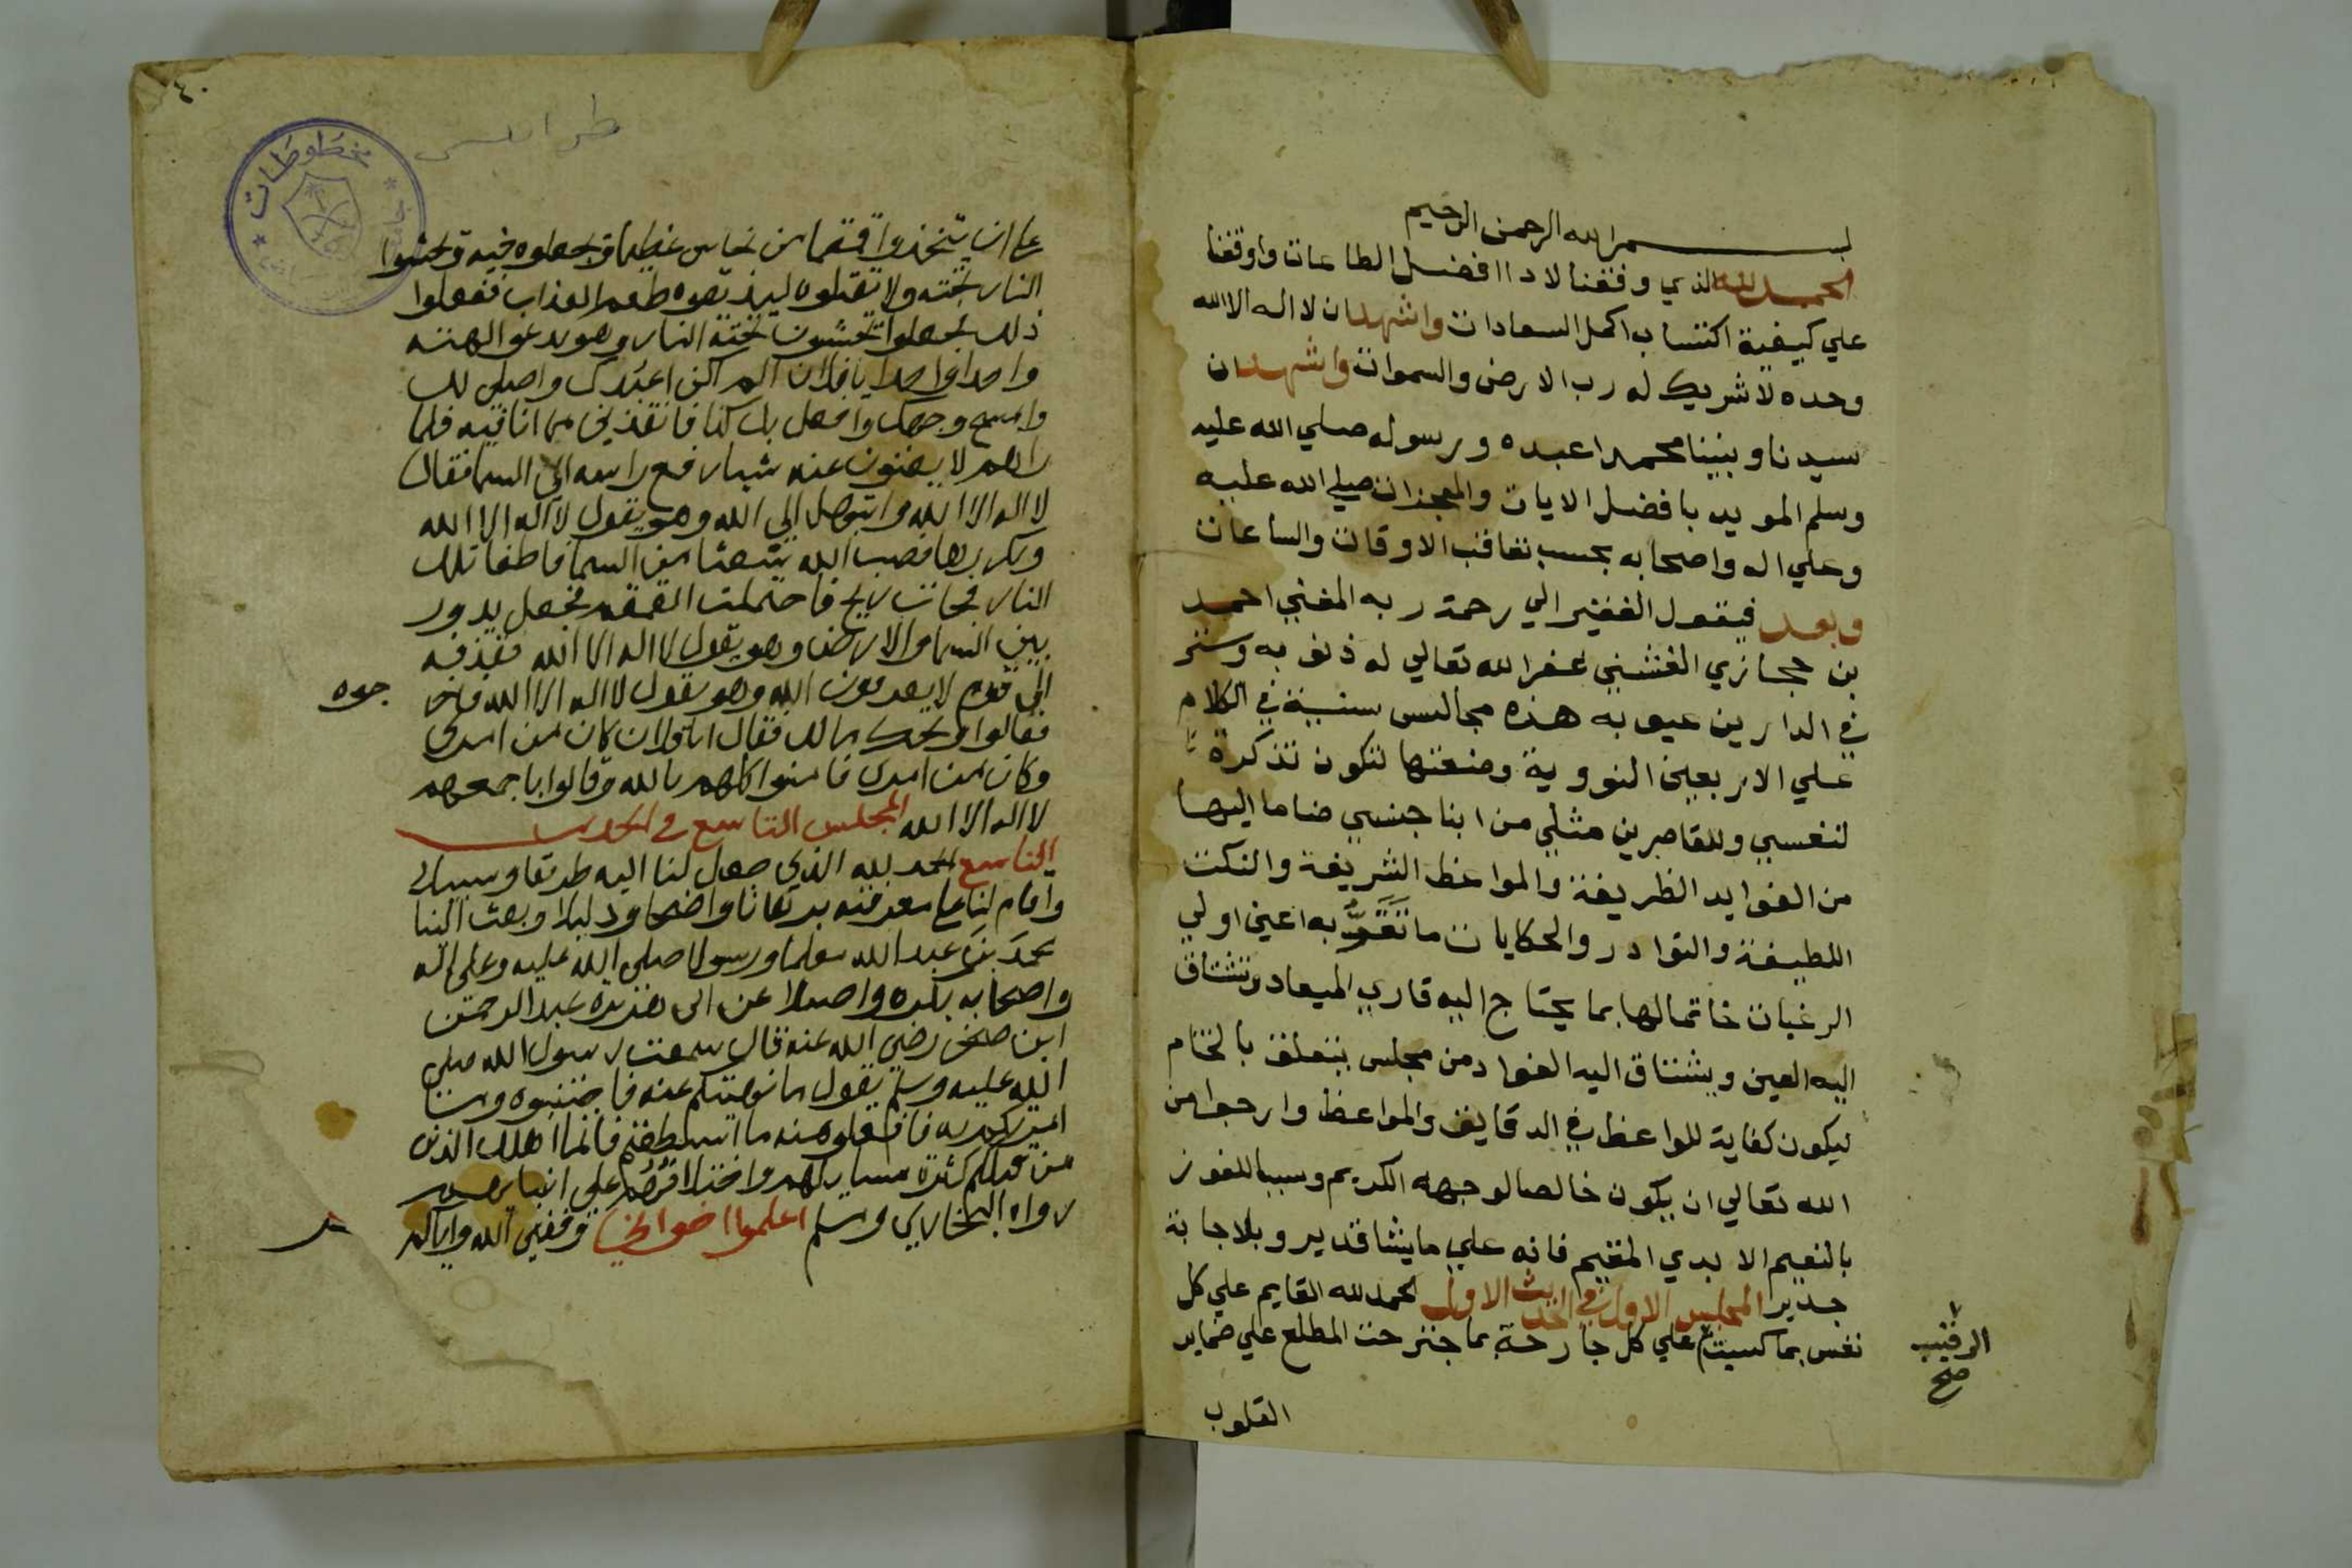 بسم الله الرحمن الرحيم
الحمد لله الذي وفقنا لاداا فضل الطاعات واوقفنا
علي كيفية اكتساب اكمل السعادات واشهد ان لا اله الا الله
وحده لا شريك له رب الارض والسموات واشهد ان
سيدنا ونبينا محمدا عبده ورسوله صلي الله عليه
وسلم المويد بافضل الايات والمعجزات صلي الله عليه
وعلي اله واصحابه بحسب تعاقب الاوقات والساعات
وبعد فيقول الفقير الي رحمة ربه المغني احمد
بن حجازي الفشني غفر الله تعالي له ذنوبه وستر
في الدارين عيوبه هذه مجالس سنية في الكلام
علي الاربعين النووية وضعتها لتكون تذكرة
لنفسي وللقاصرين مثلي من ابنا جنسي ضاما اليها
من الفوايد الظريفة والمواعظ الشريفة والنكت
اللطيفة والنوادر والحكايات ما تَقَرُّ به اعين اولي
الرغبات خاتما لها بما يحتاج اليه قاري الميعاد وتشتاق
اليه العين ويشتاق اليه الفواد من مجلس يتعلق بالختام
ليكون كفاية للواعظ في الدقايق والمواعظ وارجوا من
الله تعالي ان يكون خالصا لوجهه الكريم وسببا للفوز
بالنعيم الابدي المقيم فانه علي ما يشا قدير وبالاجابة
جدير المجلس الاول في الحديث الاول الحمد لله القايم علي كل
نفس بما كسبت علي كل جارحة بما جترحت المطلع علي ضماير
الرقيب
صح
القلوب
٤٠
مخطوطات
علي ان يتخذوا قمقما من نحاس عظيما ويجعلوه فيه ويحشوا
النار تحته ولا يقتلوه ليذيقوه طعم العذاب ففعلوا
ذلك فجعلوا يحشون تحته النار وهو يدعو الهته
واحدا واحدا يا فلان الم اكن اعبدك واصلي لك
وامسح وجهك وافعل بك كذا فانقذني مما انا فيه فلما
راهم لا يغنون عنه شيا رفع راسه الي السما فقال
لا اله الا الله وابتهل الي الله وهو يقول لا اله الا الله
ويكررها فصب الله مثعبا من السما فاطفا تلك
النار فجات ريح فاحتملت القمقم فجعل يدور
بين السما والارض وهو يقول لا اله الا الله فقذفه
الي قوم لا يعرفون الله وهو يقول لا اله الا الله
فقالوا ويحك مالك فقال انا فلان كان من امري
وكان من امري فامنوا كلهم بالله وقالوا باجمعهم
لا اله الا الله المجلس التاسع في الحديث
التاسع الحمد لله الذي جعل لنا اليه طريقا وسبيلا
واقام لنا علي معرفته برهانا واضحا ودليلا وبعث الينا
محمد بن عبد الله معلما ورسولا صلي الله عليه وعلي اله
واصحابه بكرة واصيلا عن ابي هريرة عبد الرحمن
ابن صخر رضي الله عنه قال سمعت رسول الله صلي
الله عليه وسلم يقول ما نهيتكم عنه فاجتنبوه وما
امرتكم به فافعلوا منه ما استطعتم فانما اهلك الذين
من قبلكم كثرة مسايلهم واختلافهم علي انبيايهم
رواه البخاري ومسلم اعلموا اخواني وفقني الله واياكم